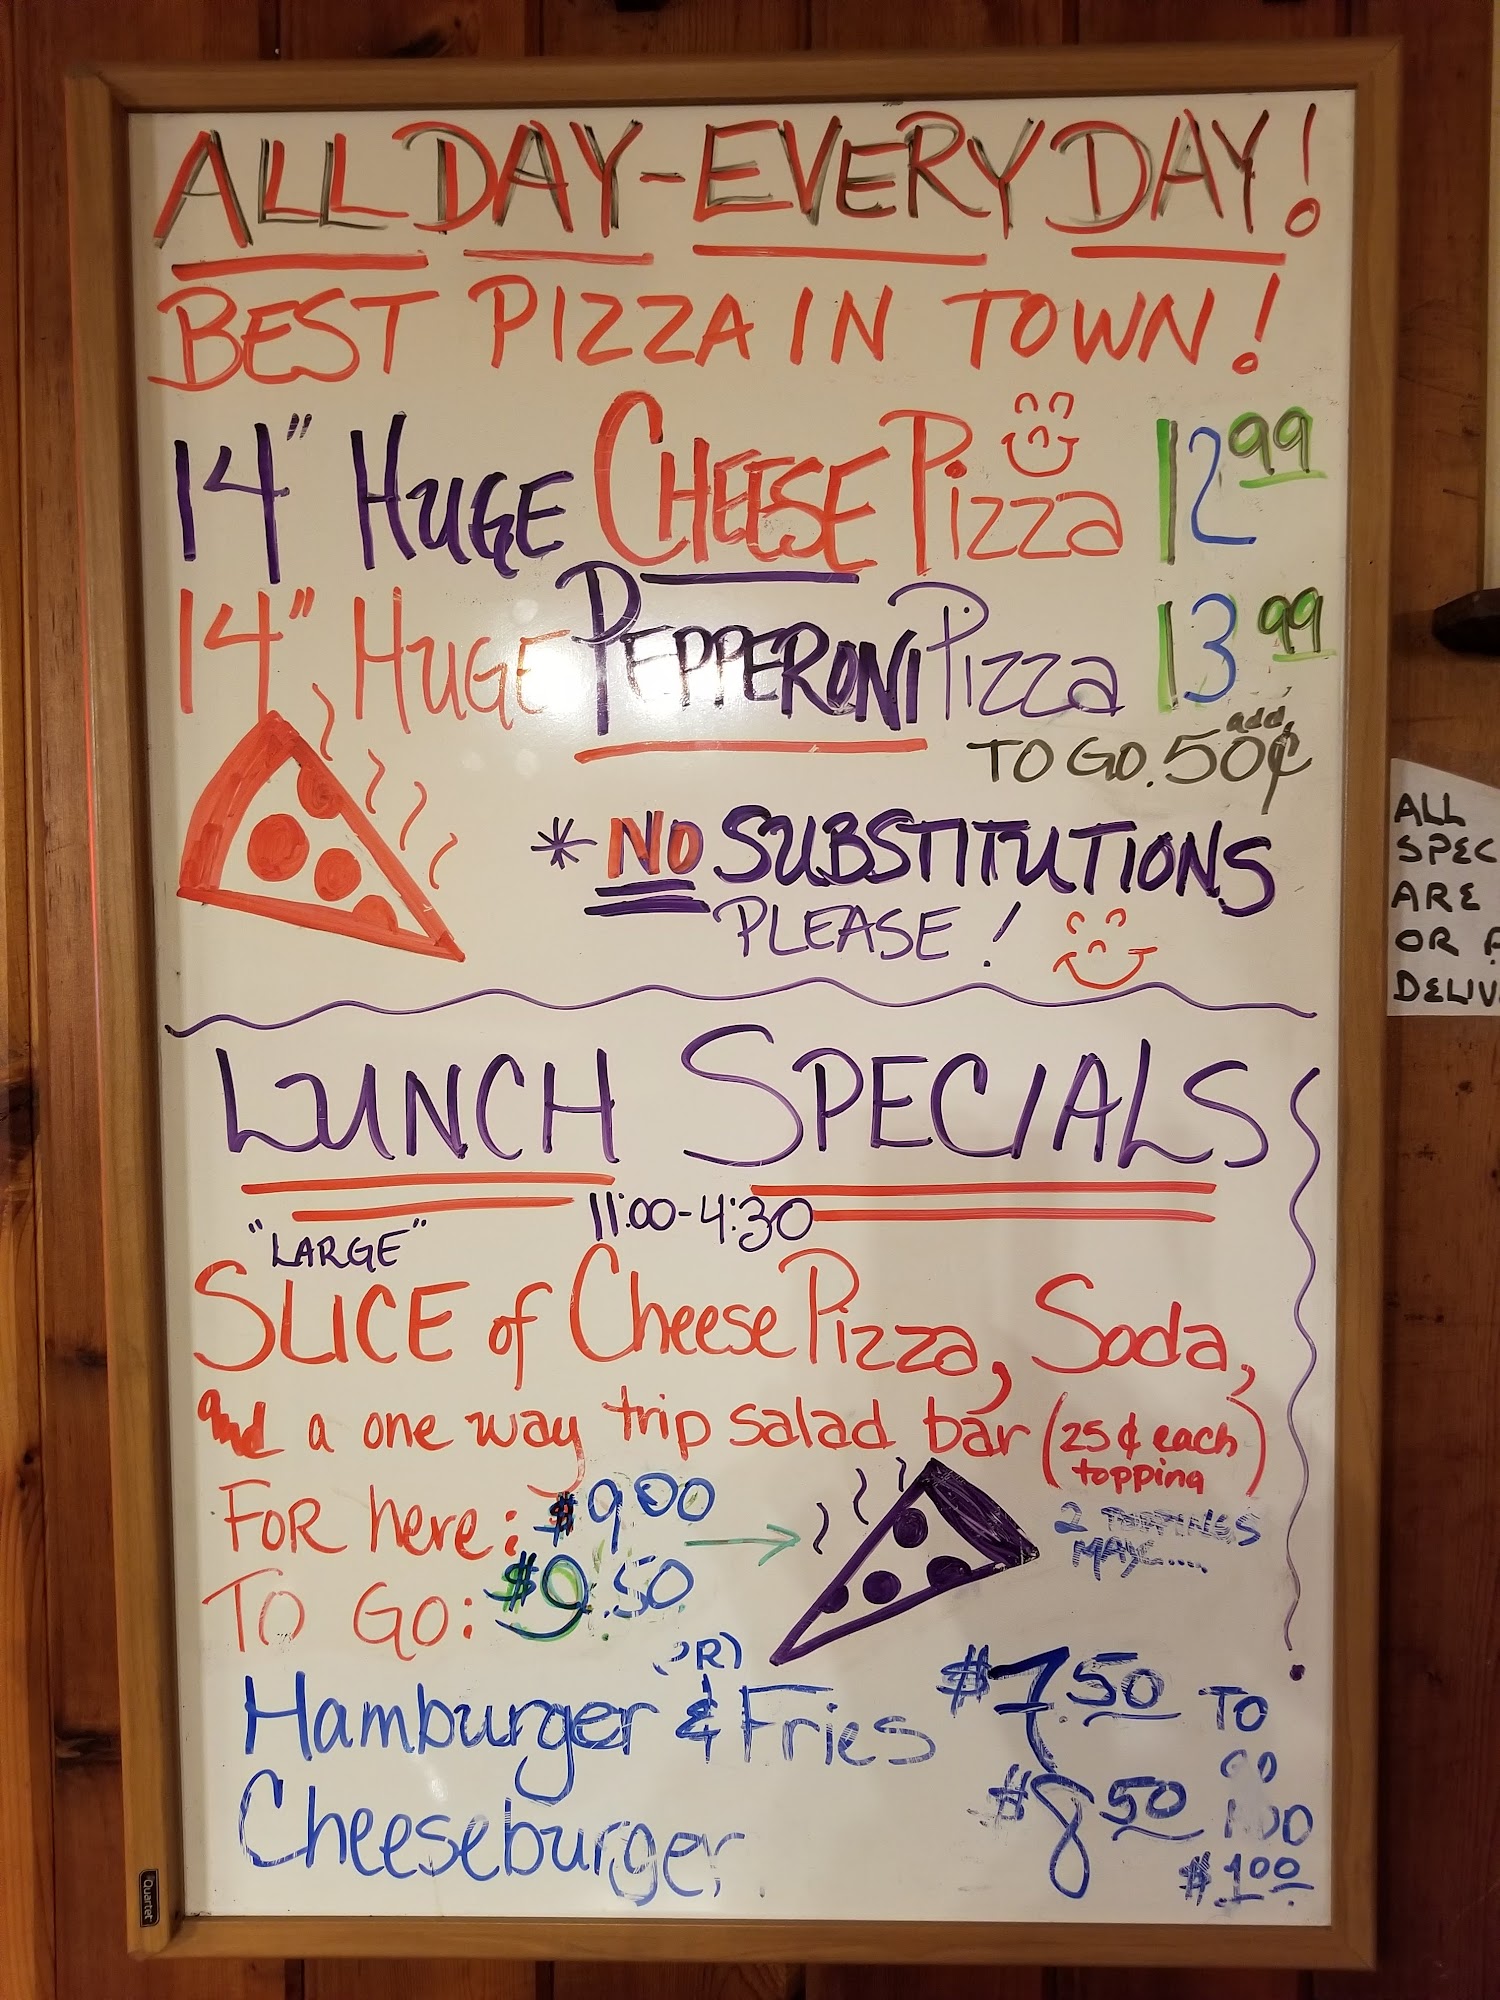 ALL DAY - EVERY DAY!
BEST PIZZA IN TOWN!
14" HUGE CHEESE Pizza 12 99
14" HUGE PEPPERONI Pizza 13 99
add
TO GO. 50¢
* NO SUBSTITUTIONS
PLEASE!
LUNCH SPECIALS
11:00-4:30
"LARGE"
SLICE of Cheese Pizza, Soda,
and a one way trip salad bar (25¢ each
topping)
FOR here: $9.00
2 TOPPINGS
MAX.....
TO GO: $9.50
Hamburger & Fries $7.50 TO
GO
Cheeseburger $8.50
$1.00
ALL
SPEC
ARE
OR
DELIV
Quartet